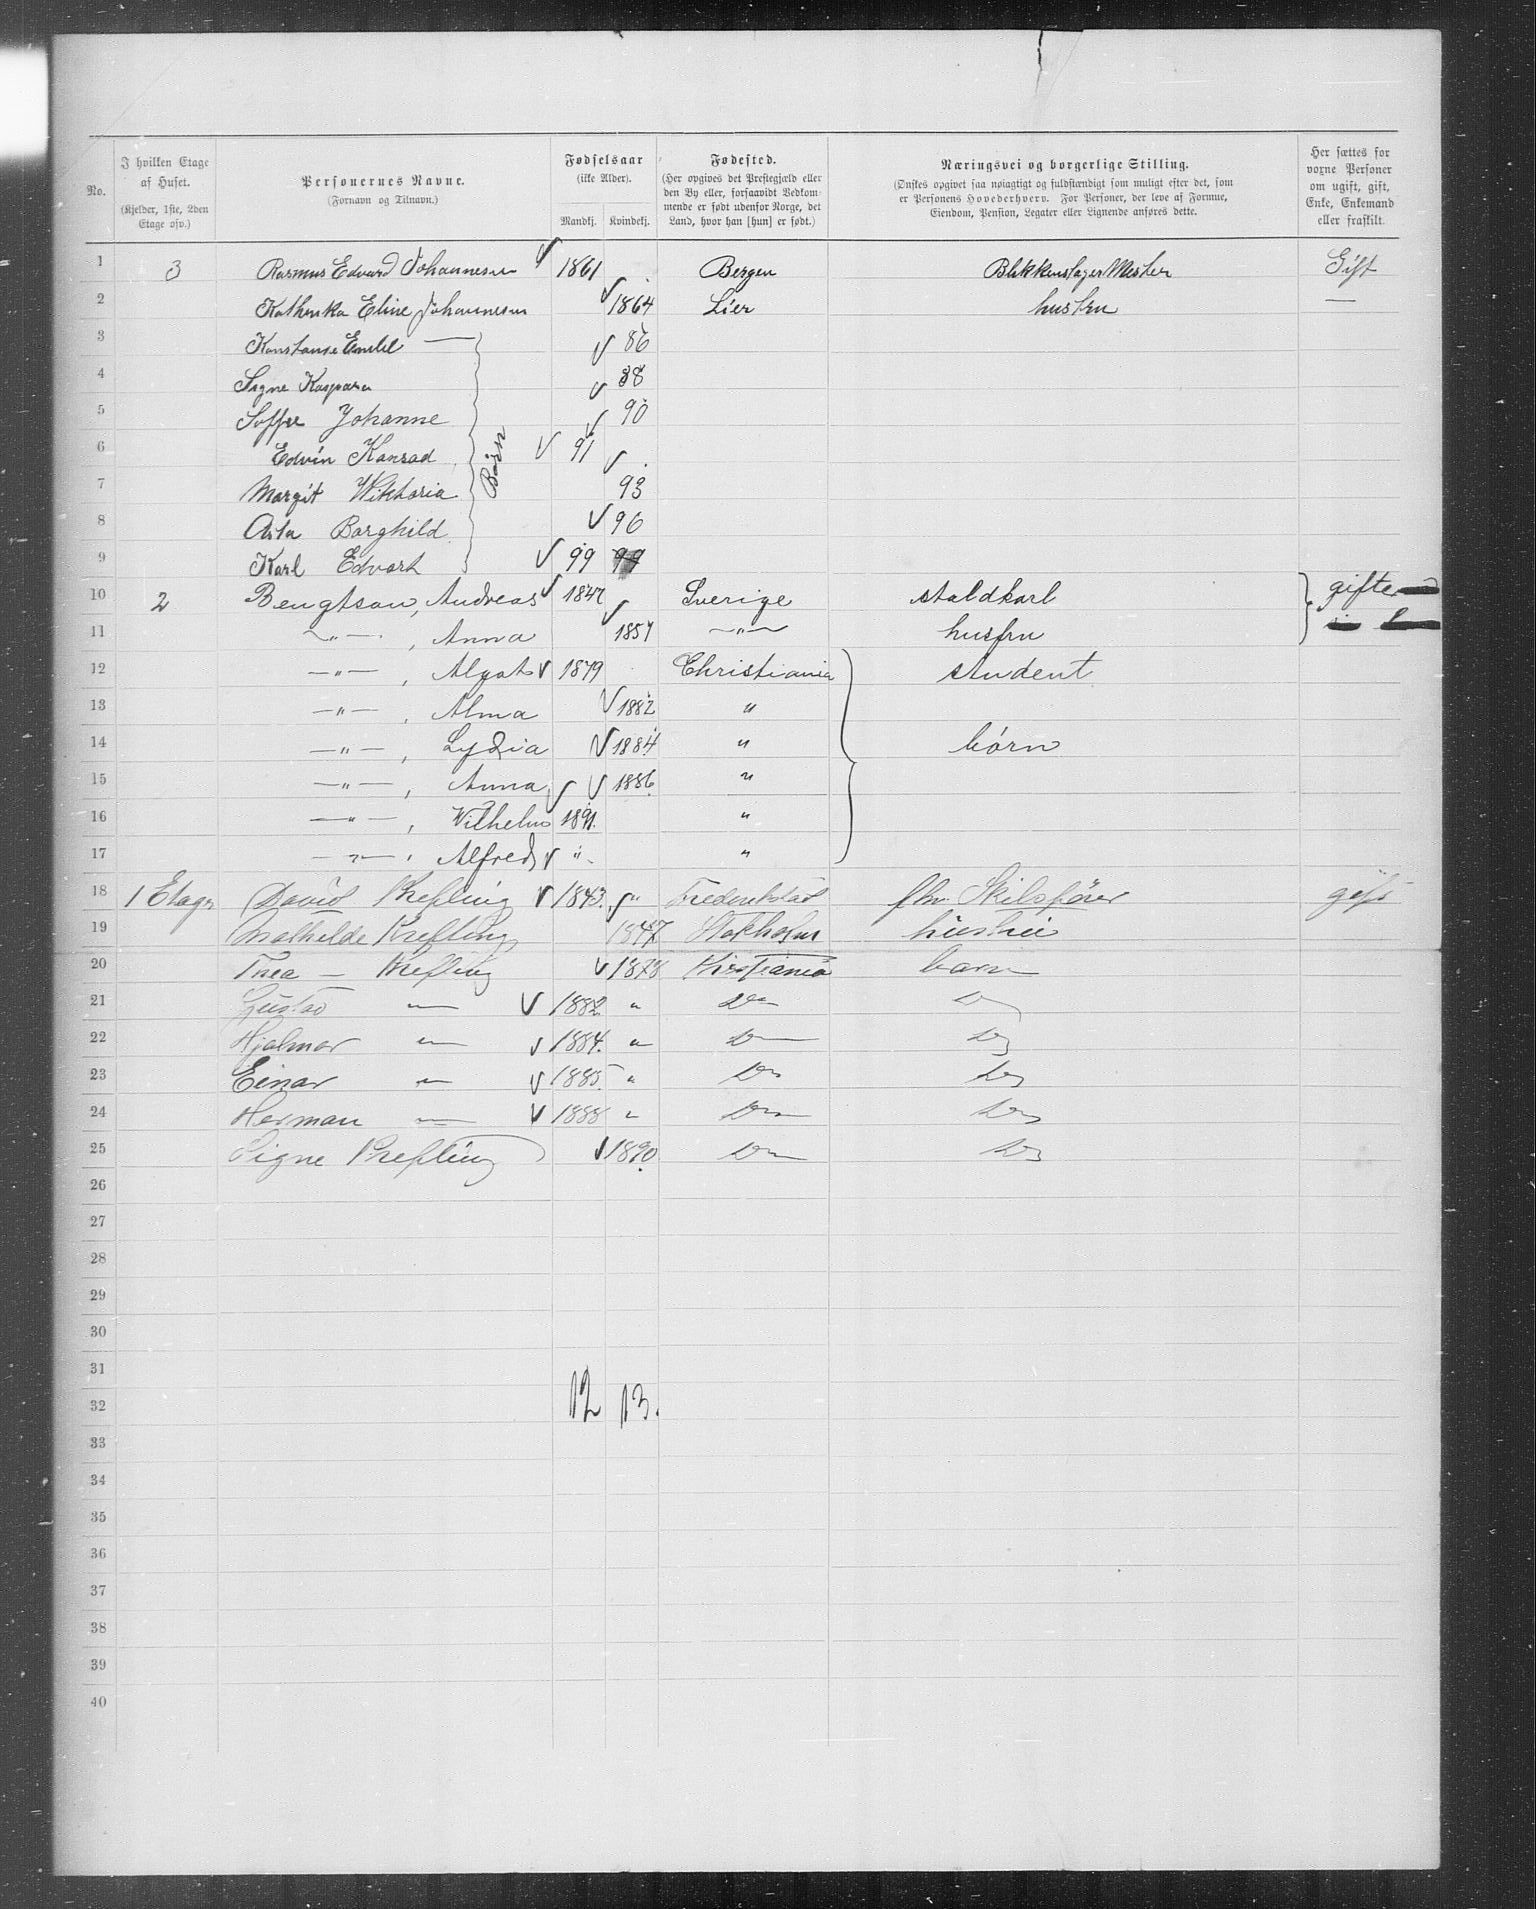 No.
I hvilken Etage af Huset. (Kjelder, 1ste, 2den Etage osv.)
Personernes Navne. (Fornavn og Tilnavn.)
Fødselsaar (ikke Alder). Mandkj. Kvindekj.
Fødested. (Her opgives det Prestegjæld eller den By eller, forsaavidt Vedkommende er født udenfor Norge, det Land, hvor han [hun] er født.)
Næringsvei og borgerlige Stilling. (Ønskes opgivet saa nøiagtigt og fuldstændigt som muligt efter det, som er Personens Hovederhverv. For Personer, der leve af Formue, Eiendom, Pension, Legater eller Lignende anføres dette.
Her sættes for voxne Personer om ugift, gift, Enke, Enkemand eller fraskilt.
1 3 Rasmus Edvard Johannesen √ 1861 Bergen Blikkenslager Mester Gift
2 Kathinka Eline Johannesen √ 1864 Lier hustru —
3 Konstanse Emilie — √ 86
4 Signe Kaspara √ 88
5 Soffie Johanne √ 90
6 Edvin Konrad √ 91
Børn
7 Margit Wiktoria √ 93
8 Asta Borghild √ 96
9 Karl Edvart √ 99 99
10 2 Bengtson, Andreas √ 1847 Sverige staldkarl gifte
11 —"— , Anna √ 1857 —"— husfru
12 —"— , Algot √ 1879 Christiania student
13 —"— , Alma √ 1882 "
14 —"— , Lydia √ 1884 " børn
15 —"— , Anna √ 1886 "
16 —"— , Wilhelm √ 1891. "
17 —"— , Alfred √ " "
18 1 Etage David Krefting √ 1843 " Frederikstad gift
19 Mathilde Krefting √ 1847 Stokholm hustru
20 Thea — Krefting √ 1878 Kristiania barn
21 Gustav — √ 1882 " Do Do
22 Hjalmar — √ 1884. " Do Do
23 Einar — √ 1885 " Do Do
24 Herman — √ 1888 " Do Do
25 Signe Krefting √ 1890 Do Do
26
27
28
29
30
31
32 12 13.
33
34
35
36
37
38
39
40